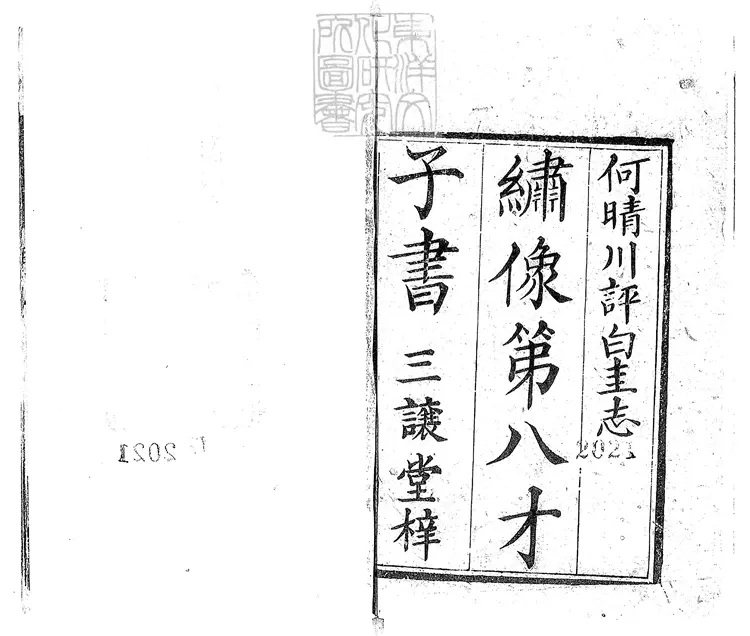 東洋文
化研究
所圖書
何晴川評白圭志
2021
繡像第八才
子書 三讓堂梓
2021